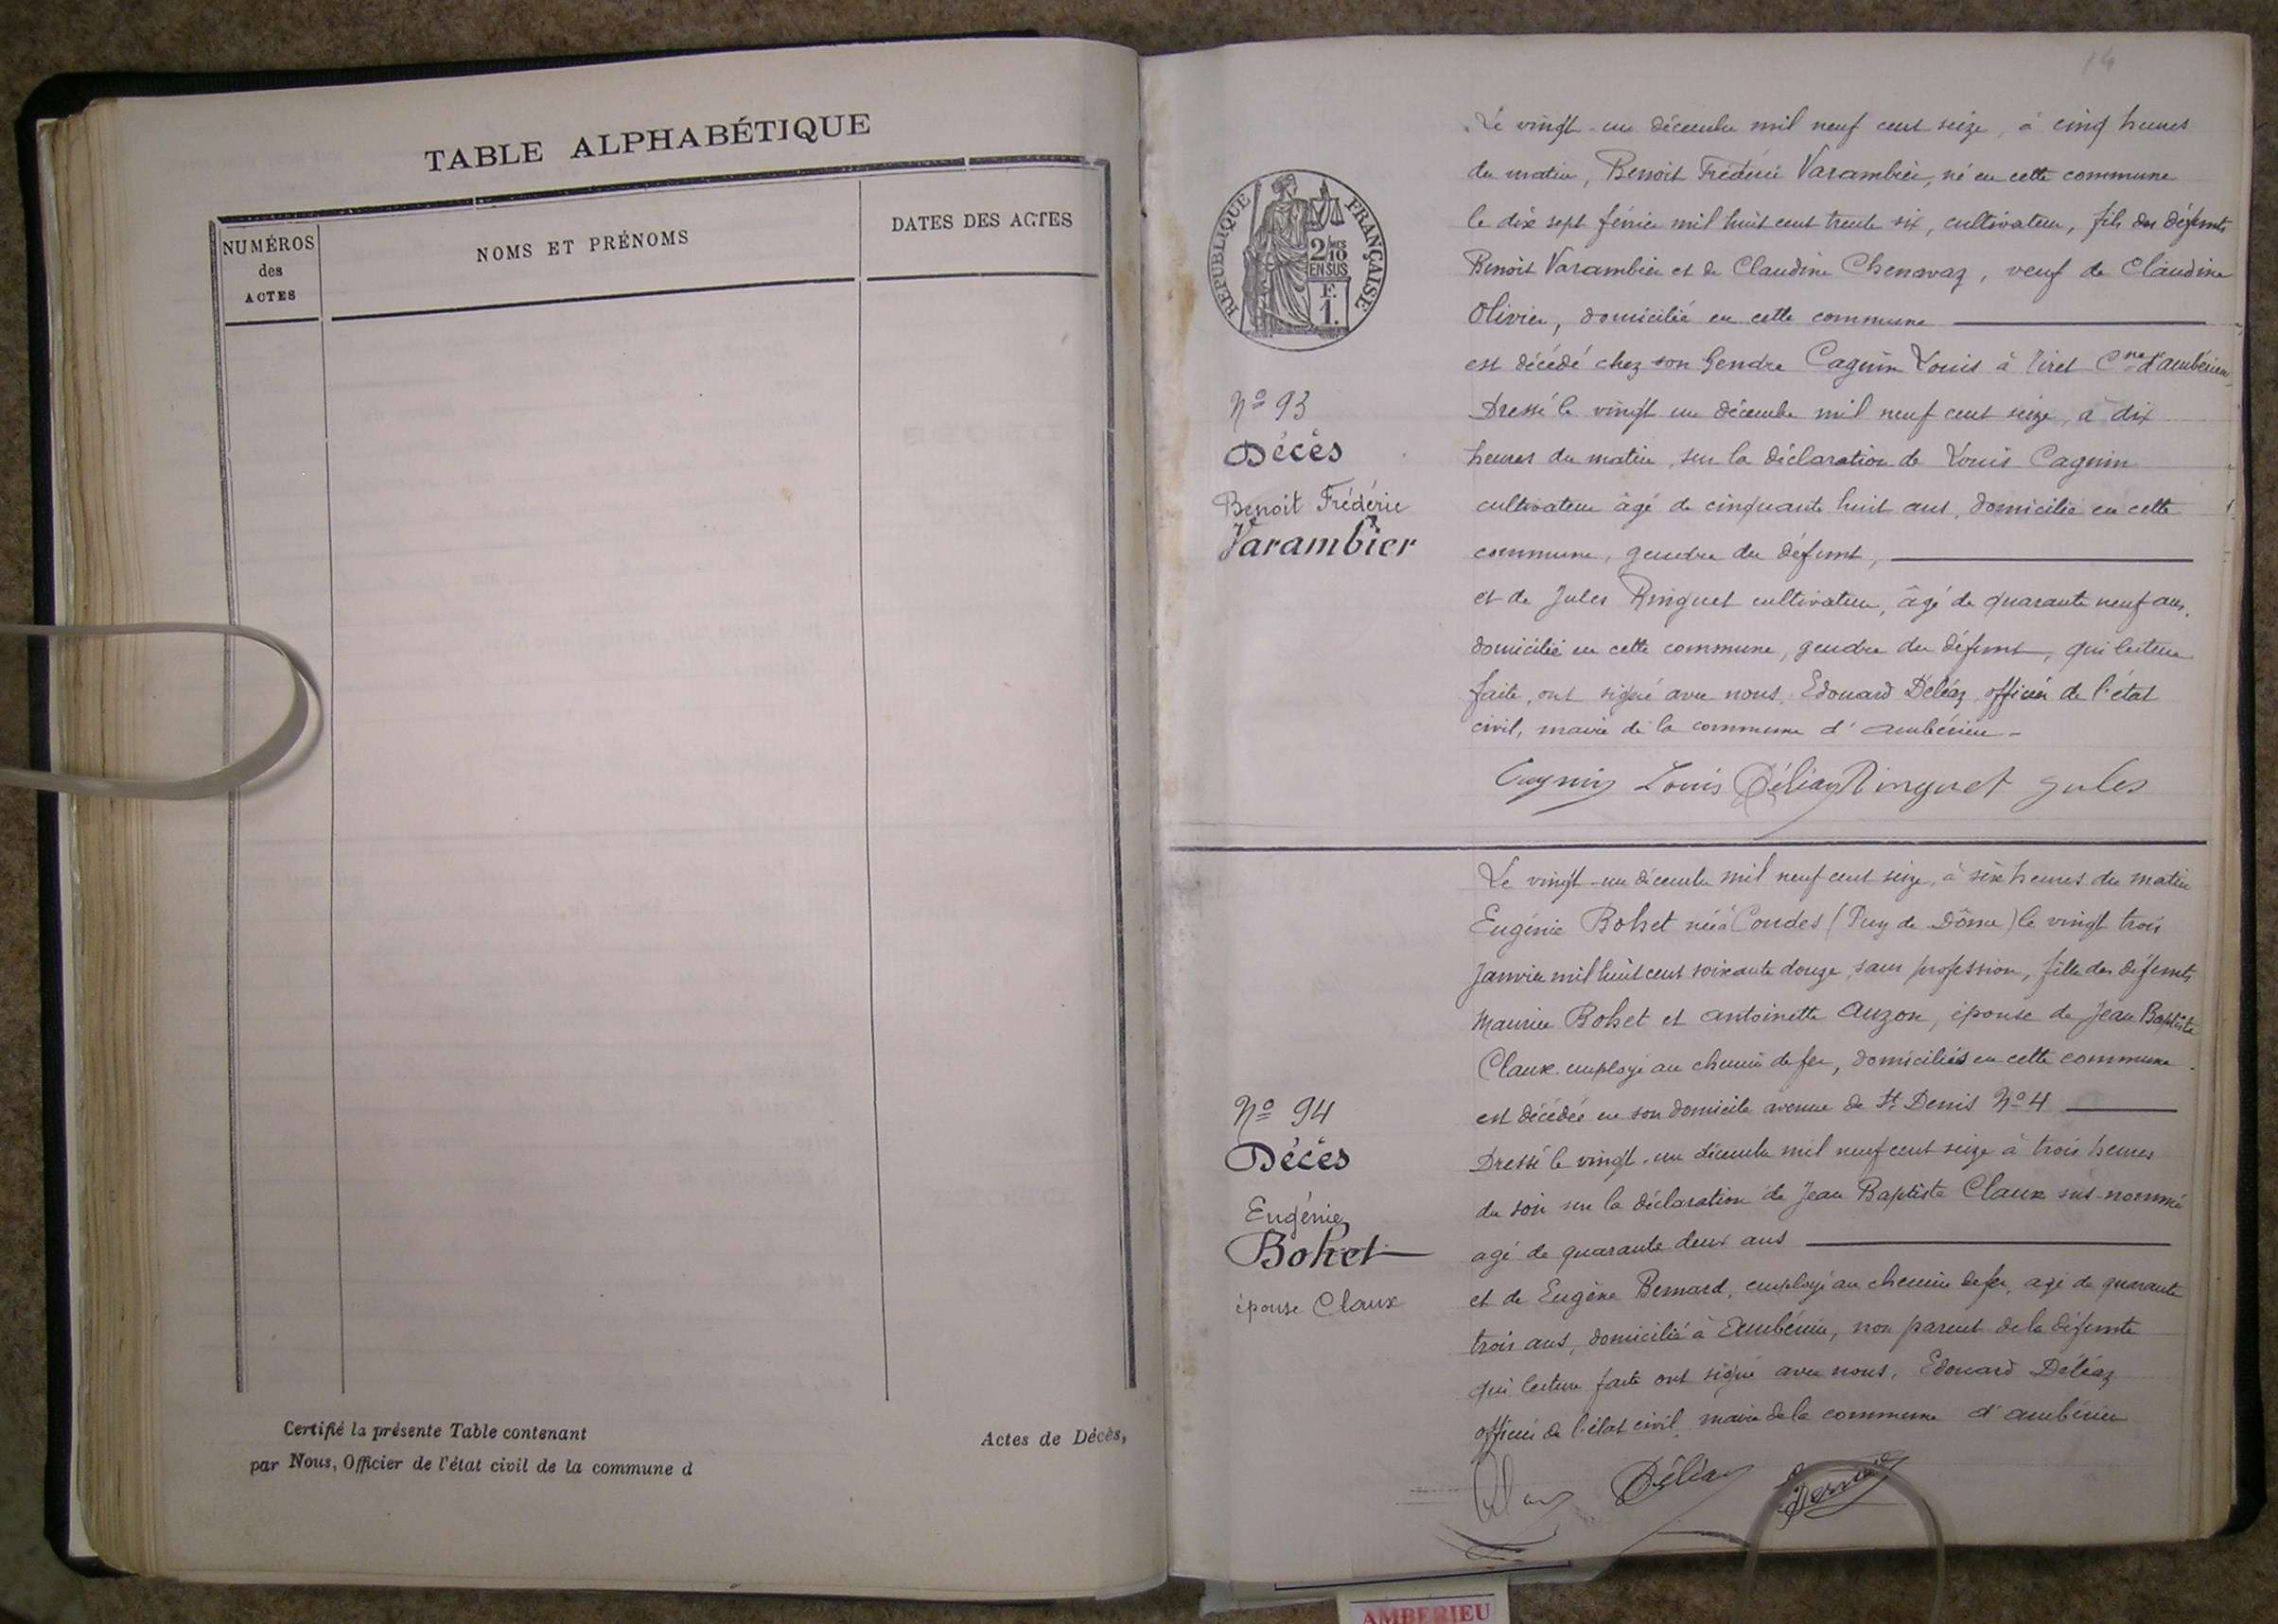 TABLE ALPHABÉTIQUE
NUMÉROS
des
ACTES
NOMS ET PRÉNOMS
DATES DES ACTES
Certifié la présente Table contenant
Actes de Décès,
par Nous, Officier de l'état civil de la commune d
14
Le vingt-un décembre mil neuf cent seize, à cinq heures
du matin, Benoit Frédéric Varambier, né en cette commune
le dix sept février mil huit cent trente six, cultivateur, fils des défunts
Benoit Varambier et de Claudine Chenavaz, veuf de Claudine
Olivier, domicilié en cette commune
est décédé chez son Gendre Cagnin Louis à Tiret Cne d'ambérieu
Dressé le vingt un décembre mil neuf cent seize, à dix
heures du matin, sur la déclaration de Louis Cagnin
cultivateur âgé de cinquante huit ans, domicilié en cette
commune, gendre du défunt,
et de Jules Ringuet cultivateur, âgé de quarante neuf ans,
domicilié en cette commune, gendre du défunt, qui lecture
faite, ont signé avec nous, Edouard Deléaz officier de l'état
civil, maire de la commune d'ambérieu -
Cagnin Louis Déléaz Ringuet Jules
RÉPUBLIQUE FRANÇAISE
2/10
EN SUS
F.
1.
No 93
Décès
Benoit Frédéric
Varambier
Le vingt-un décembre mil neuf cent seize, à six heures du matin
Eugénie Bohet née à Coudes (Puy de Dôme) le vingt trois
Janvier mil huit cent soixante douze, sans profession, fille des défunts
Maurice Bohet et antoinette Auzon, épouse de Jean Baptiste
Claux employé au chemin de fer, domiciliés en cette commune
est décédée en son domicile avenue de St. Denis No 4
Dressé le vingt-un décembre mil neuf cent seize à trois heures
du soir sur la déclaration de Jean Baptiste Claux sus-nommé
agé de quarante deux ans
et de Eugène Bernard, employé au chemin de fer, agé de quarante
trois ans, domicilié à Ambérieu, non parent de la défunte
qui lecture faite ont signé avec nous, Edouard Déléaz
officier de l'état civil, maire de la commune d'ambérieu
Claux Déléaz Bernard
No 94
Décès
Eugénie
Bohet
épouse Claux
AMBERIEU